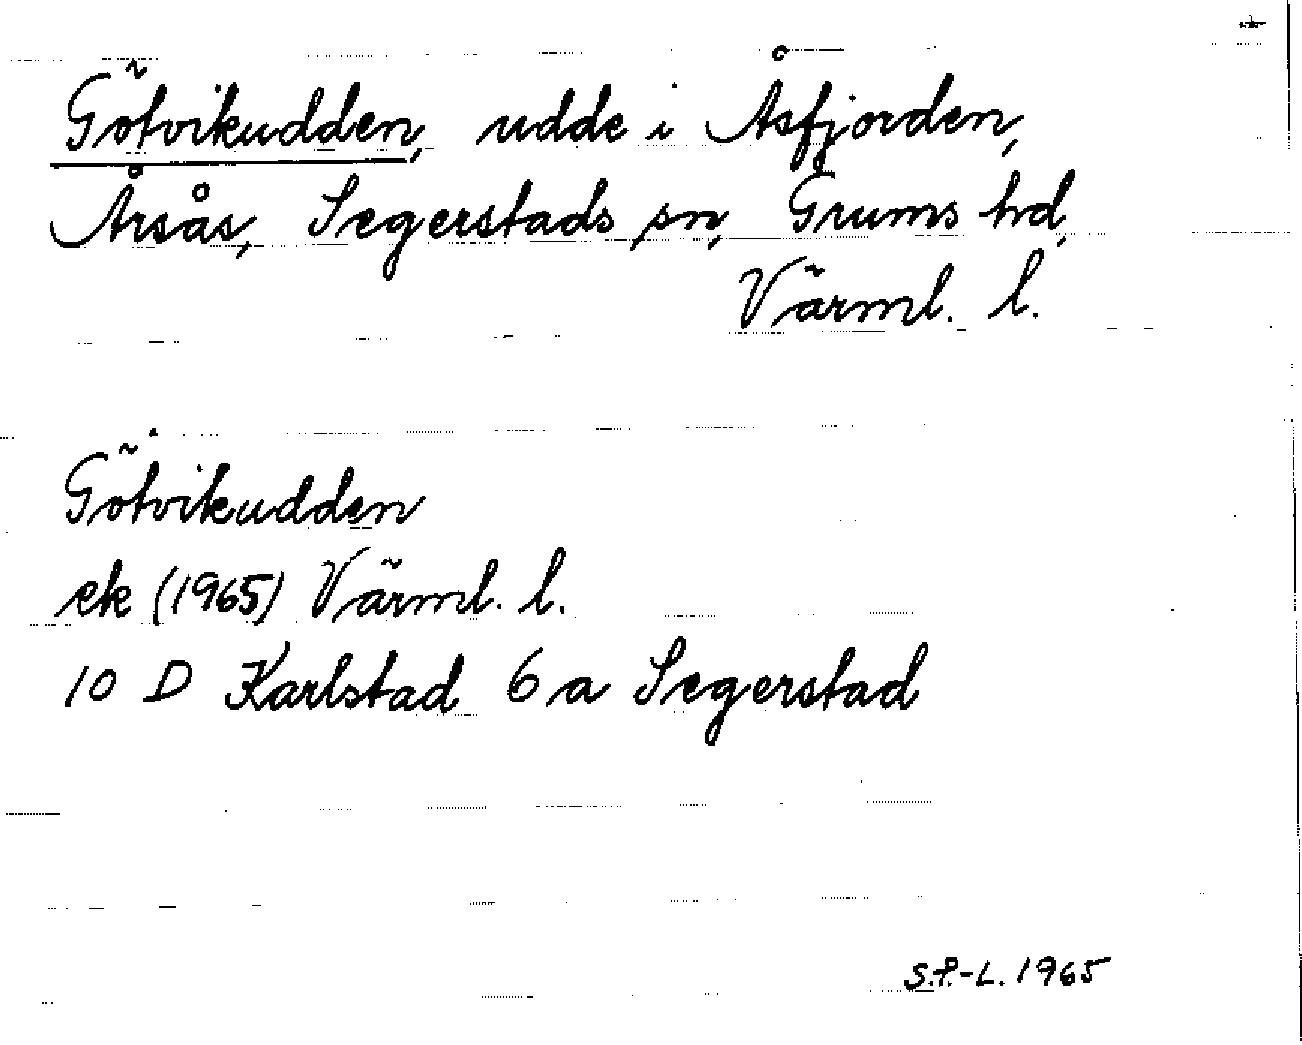 Götvikudden, udde i Åsfjorden,
Årsås, Segerstads sn, Grums hd,
Värml. l.
Götvikudden
ek (1965) Värml. l.
10 D Karlstad 6 a Segerstad
S.P.-L. 1965